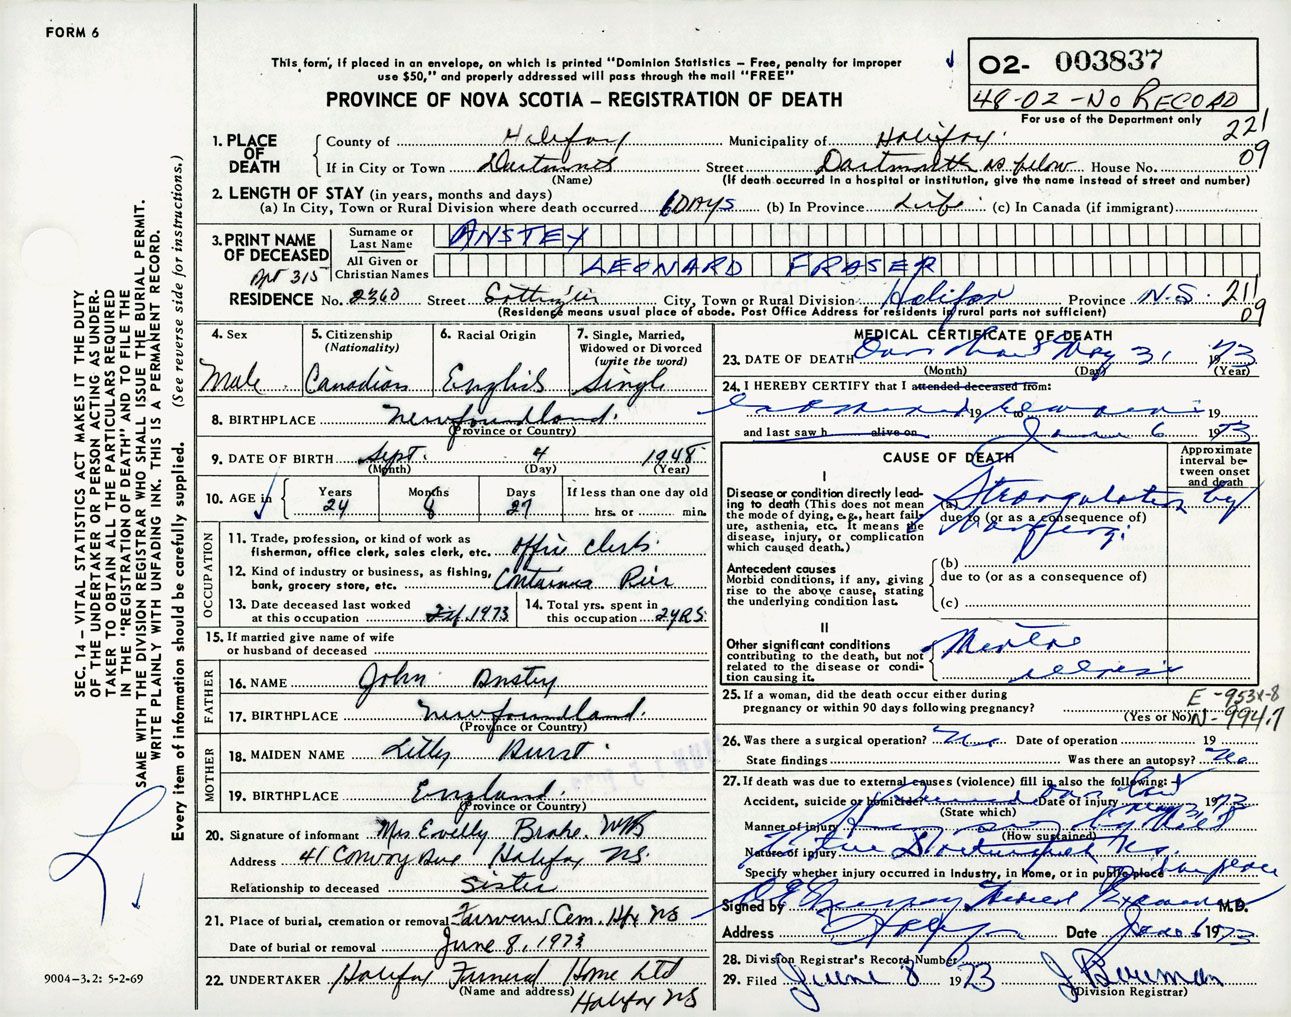 FORM 6
This form, if placed in an envelope, on which is printed "Dominion Statistics – Free, penalty for improper
use $50," and properly addressed will pass through the mail "FREE"
O2- 003837
48-02-NO RECORD
For use of the Department only
PROVINCE OF NOVA SCOTIA – REGISTRATION OF DEATH
221
09
1. PLACE OF DEATH County of Halifax Municipality of Halifax
If in City or Town Dartmouth Street Dartmouth as below House No.
(Name) (If death occurred in a hospital or institution, give the name instead of street and number)
2. LENGTH OF STAY (in years, months and days)
(a) In City, Town or Rural Division where death occurred 6 DAYS (b) In Province Life (c) In Canada (if immigrant)
3. PRINT NAME OF DECEASED Surname or Last Name ANSTEY
All Given or Christian Names LEONARD FRASER
Apt 315
RESIDENCE No. 2360 Street City, Town or Rural Division Halifax Province N.S. 211
09
(Residence means usual place of abode. Post Office Address for residents in rural parts not sufficient)
4. Sex Male
5. Citizenship (Nationality) Canadian
6. Racial Origin English
7. Single, Married, Widowed or Divorced (write the word) Single
8. BIRTHPLACE Newfoundland.
(Province or Country)
9. DATE OF BIRTH Sept. 4 1948
(Month) (Day) (Year)
10. AGE in Years 24 Months 8 Days 27 If less than one day old
hrs. or min.
OCCUPATION
11. Trade, profession, or kind of work as fisherman, office clerk, sales clerk, etc. Office Clerk
12. Kind of industry or business, as fishing, bank, grocery store, etc. Pier
13. Date deceased last worked at this occupation 1973
14. Total yrs. spent in this occupation 2 YRS.
15. If married give name of wife or husband of deceased
FATHER
16. NAME John Anstey
17. BIRTHPLACE Newfoundland.
(Province or Country)
MOTHER
18. MAIDEN NAME Lilly
19. BIRTHPLACE England.
(Province or Country)
20. Signature of informant Mrs. Brake
Address 41 Convoy Ave Halifax NS.
Relationship to deceased Sister
21. Place of burial, cremation or removal Fairview Cem. Hfx NS
Date of burial or removal June 8, 1973
22. UNDERTAKER Halifax Funeral Home Ltd
(Name and address) Halifax NS
MEDICAL CERTIFICATE OF DEATH
23. DATE OF DEATH May 31 1973
(Month) (Day) (Year)
24. I HEREBY CERTIFY that I attended deceased from:
19 to 19
and last saw h alive on June 6 1973
CAUSE OF DEATH
Approximate interval between onset and death
I
Disease or condition directly leading to death (This does not mean the mode of dying, e.g., heart failure, asthenia, etc. It means the disease, injury, or complication which caused death.)
(a) Strangulation by
due to (or as a consequence of)
Antecedent causes
Morbid conditions, if any, giving rise to the above cause, stating the underlying condition last.
(b)
due to (or as a consequence of)
(c)
II
Other significant conditions contributing to the death, but not related to the disease or condition causing it.
Mental
25. If a woman, did the death occur either during pregnancy or within 90 days following pregnancy?
(Yes or No)
E-953X-8
N-994.7
26. Was there a surgical operation? No Date of operation 19
State findings Was there an autopsy? No
27. If death was due to external causes (violence) fill in also the following:
Accident, suicide or homicide? Date of injury May 31 1973
(State which)
Manner of injury
(How sustained)
Nature of injury
Specify whether injury occurred in Industry, in Home, or in public place
Signed by Medical Examiner M.D.
Address Date June 6 1973
28. Division Registrar's Record Number
29. Filed June 8 1973
(Division Registrar)
SEC. 14 – VITAL STATISTICS ACT MAKES IT THE DUTY
OF THE UNDERTAKER OR PERSON ACTING AS UNDER-
TAKER TO OBTAIN ALL THE PARTICULARS REQUIRED
IN THE "REGISTRATION OF DEATH" AND TO FILE THE
SAME WITH THE DIVISION REGISTRAR WHO SHALL ISSUE THE BURIAL PERMIT.
WRITE PLAINLY WITH UNFADING INK. THIS IS A PERMANENT RECORD.
Every item of information should be carefully supplied. (See reverse side for instructions.)
9004-3.2: 5-2-69